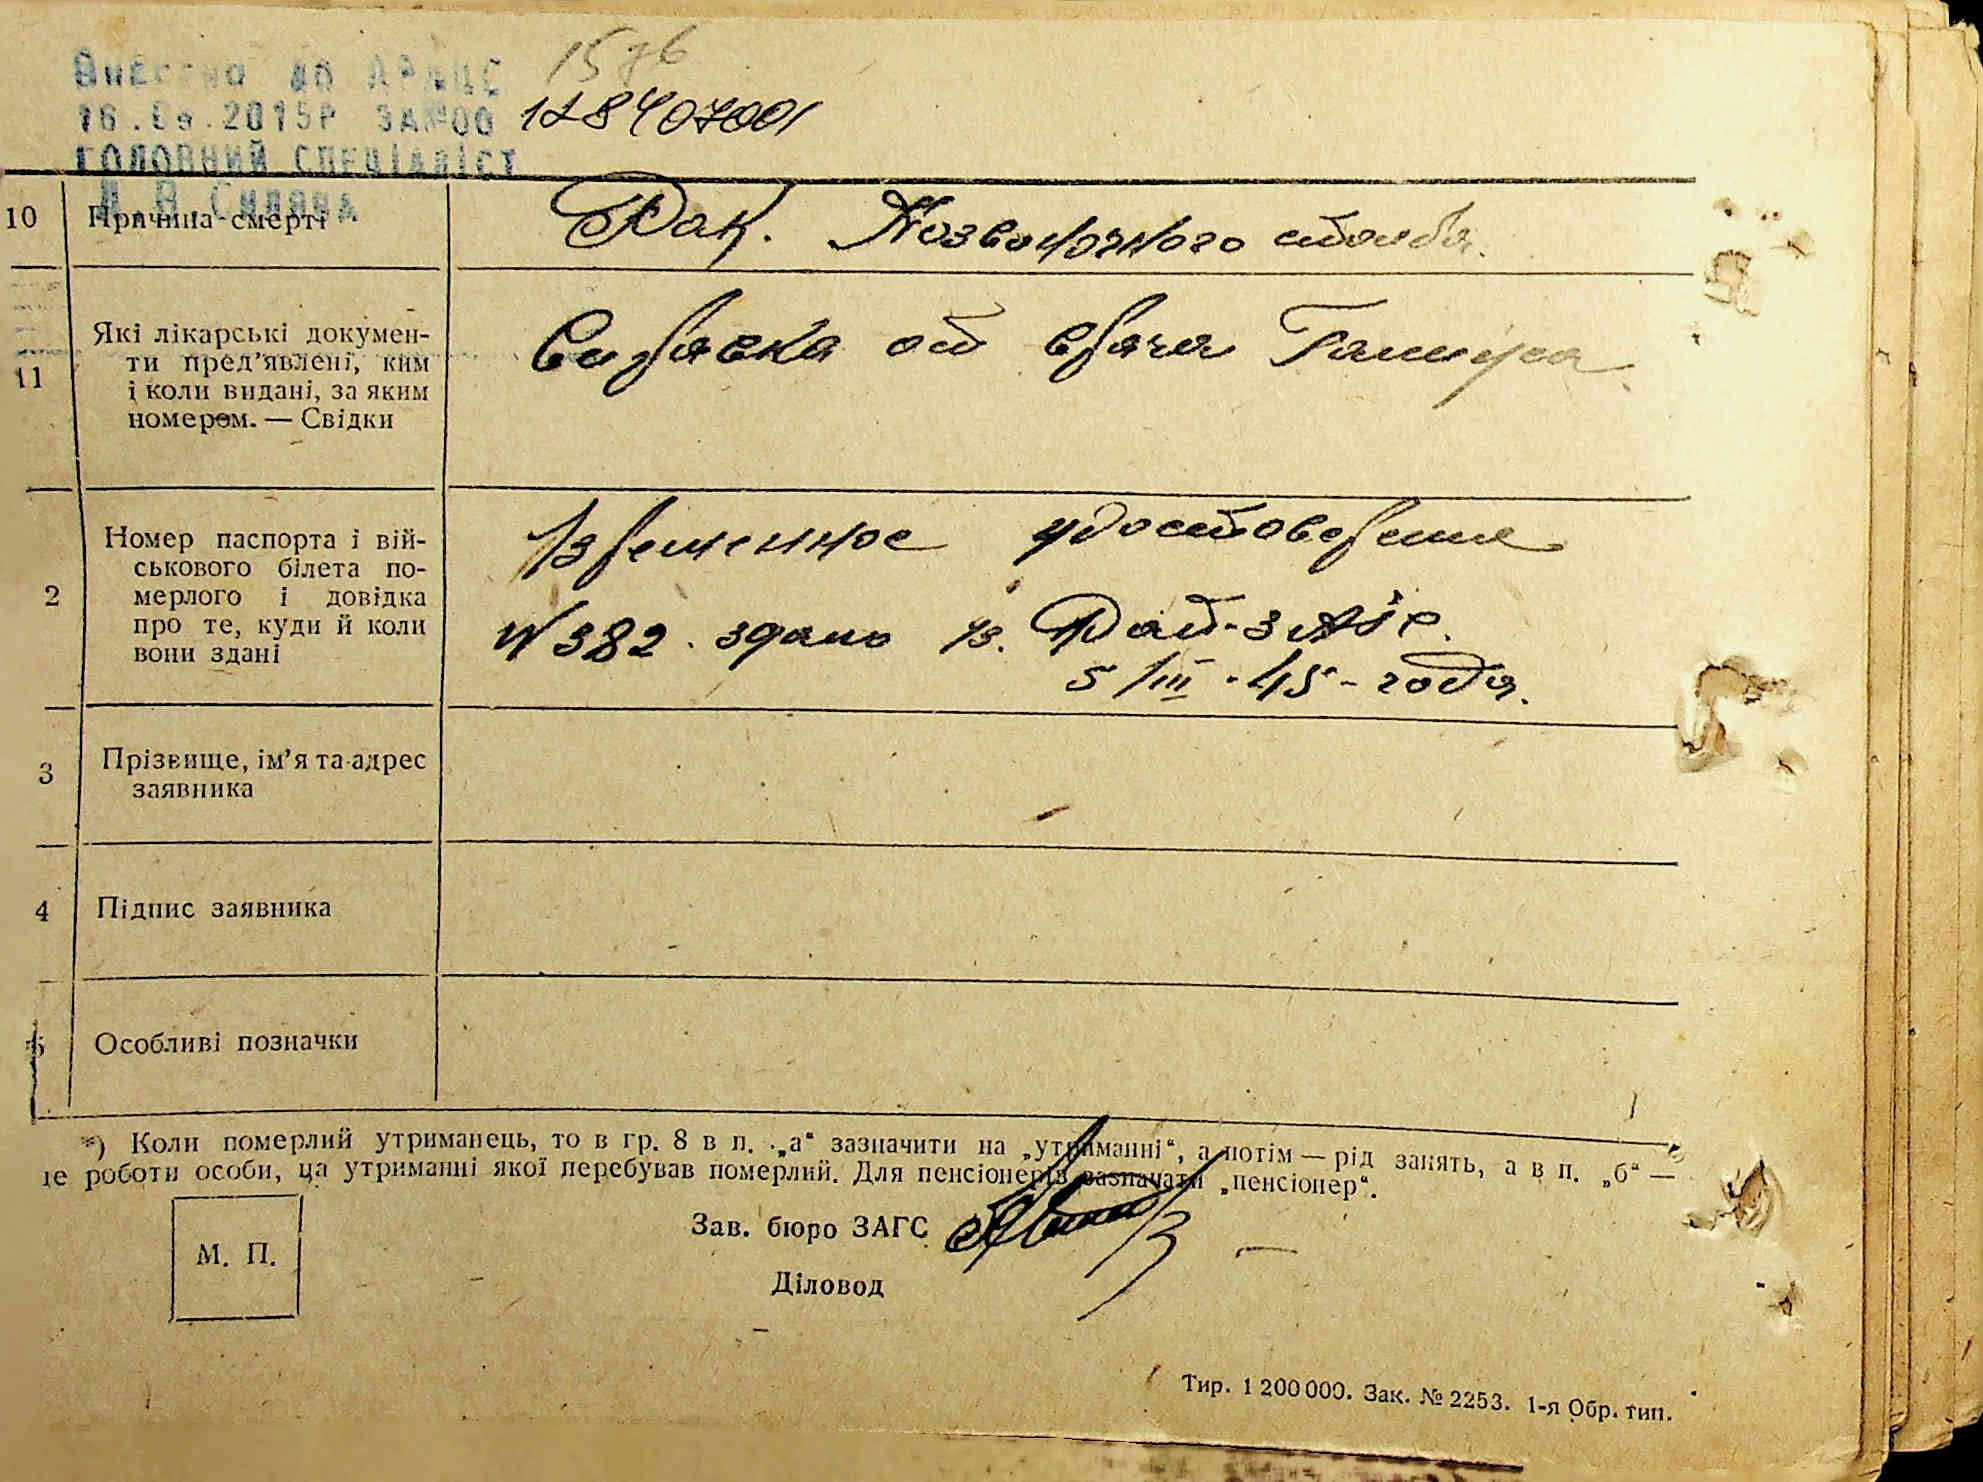 Внесено до АРАЦС 15зв
16.09.2015Р ЗА№00 128407001
ГОЛОВНИЙ СПЕЦІАЛІСТ
10 Причина смерті Рак. Позвоночного столба.
11 Які лікарські докумен-
ти пред’явлені, ким
і коли видані, за яким
номером. — Свідки
Справка от врача
2 Номер паспорта і вій-
ськового білета по-
мерлого і довідка
про те, куди й коли
вони здані
Временное удостоверение
N 382. здано в. Рай-загс.
5/III-45-года.
3 Прізвище, ім’я та адрес
заявника
4 Підпис заявника
5 Особливі позначки
*) Коли померлий утриманець, то в гр. 8 в п. „а“ зазначити на „утриманні“, а потім — рід занять, а в п. „б“ —
це роботи особи, на утриманні якої перебував померлий. Для пенсіонерів зазначати „пенсіонер“.
М. П.
Зав. бюро ЗАГС
Діловод
Тир. 1 200 000. Зак. № 2253. 1-я Обр. тип.